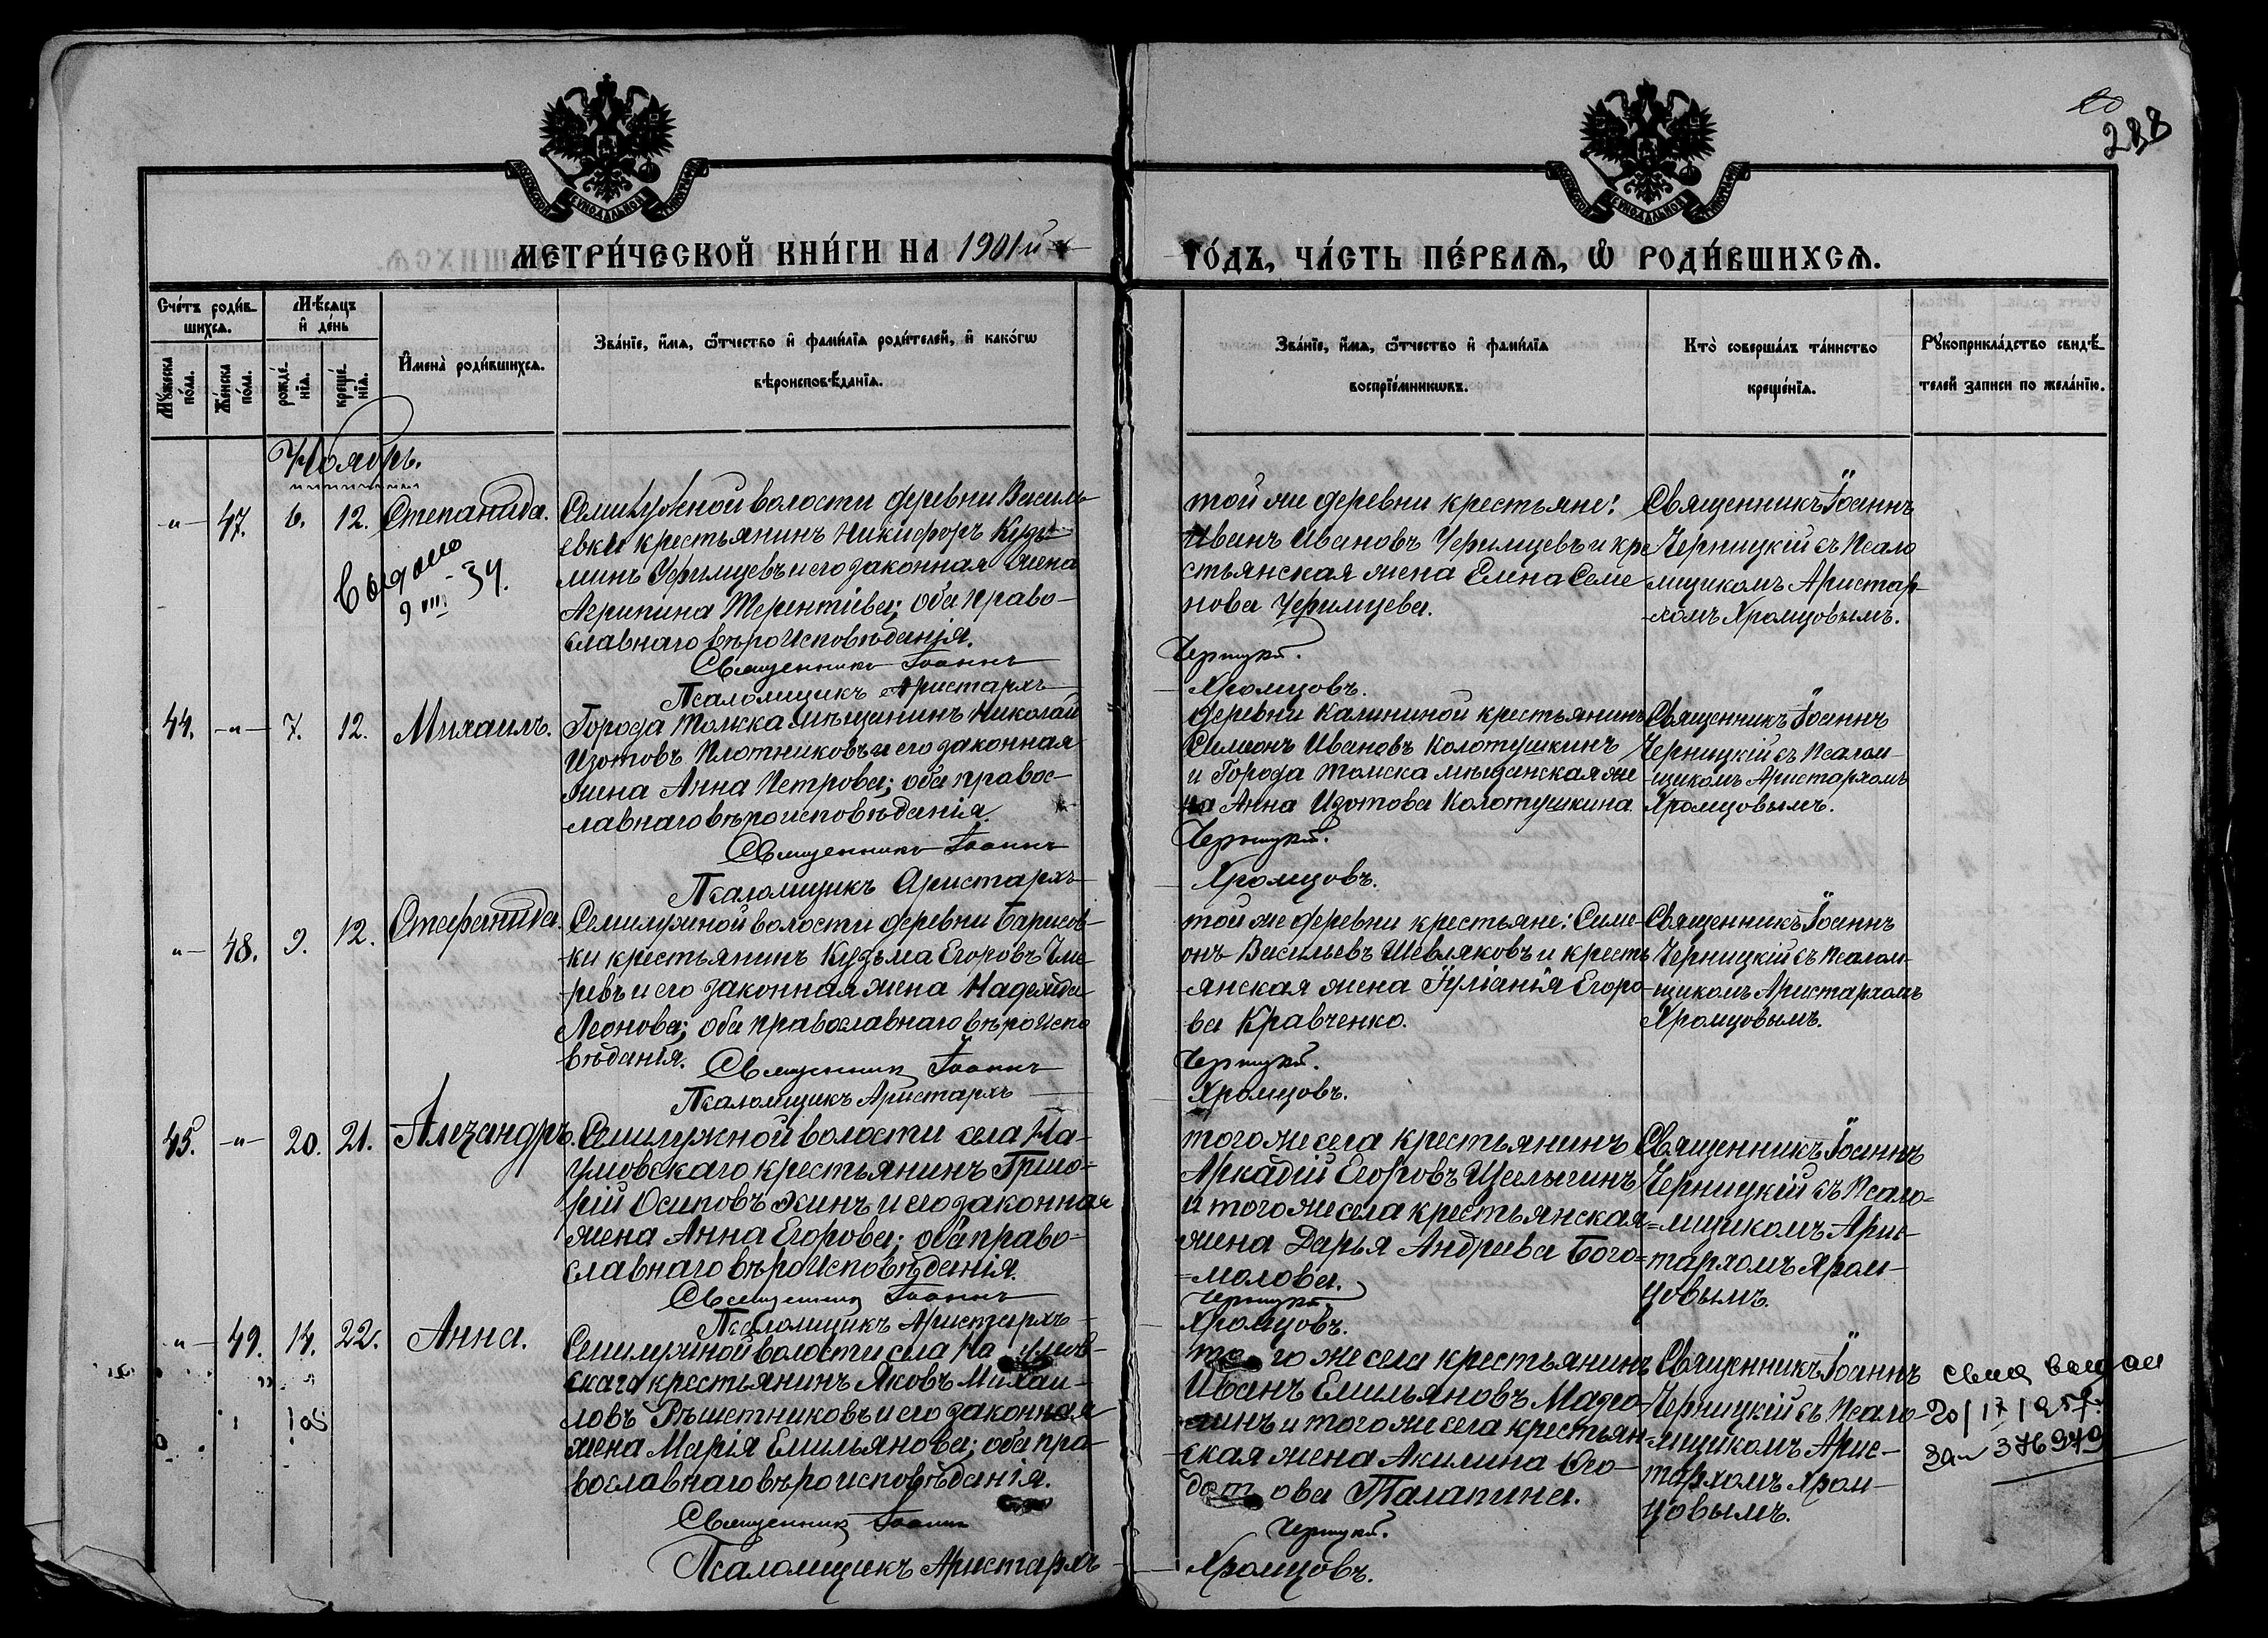 20
288
МЕТРИ́ЧЕСКОЙ КНИ́ГИ НА 1901й
ГО́ДЪ, ЧА́СТЬ ПЕ́РВАѦ, Ѽ РОДИ́ВШИХСѦ.
Сче́тъ роди́в-
шихсѧ.
Мꙋ́жеска
по́ла.
Же́нска
по́ла.
Мѣ́сѧцъ
и҆ де́нь
рожде́-
нїѧ.
креще́-
нїѧ.
И҆мена̀ роди́вшихсѧ.
Зва́нїе, и҆́мѧ, ѻ҆́тчество и҆ фами́лїѧ роди́телей, и҆ како́гѡ
вѣроисповѣ́данїѧ.
Зва́нїе, и҆́мѧ, ѻ҆́тчество и҆ фами́лїѧ
воспрїе́мникѡвъ.
Кто̀ соверша́лъ та́инство
креще́нїѧ.
Рꙋкоприкла́дство свидѣ́-
телей записи по жела́нїю.
Ноябрь.
-и- 47. 6. 12. Степанида.
Выдано
9 VIII - 34.
Семилужной волости деревни Василь-
евки крестьянинъ Никифоръ Кузь-
минъ Черимцевъ и его законная жена
Агрипина Терентіева; оба право-
славнаго вѣроисповѣданія.
Священникъ Іоаннъ
Псаломщикъ Аристархъ
той же деревни крестьяне:
Иванъ Ивановъ Черимцевъ и кре-
стьянская жена Елена Семе-
нова Черимцева.
Черницкій.
Хромцовъ.
Священникъ Іоаннъ
Черницкій съ Псало-
мщикомъ Аристар-
хомъ Хромцовымъ.
44. -и- 7. 12. Михаилъ.
Города Томска мѣщанинъ Николай
Изотовъ Плотниковъ и его законная
жена Анна Петрова; оба правос-
лавнаго вѣроисповѣданія.
Священникъ Іоаннъ
Псаломщикъ Аристархъ
деревни Калининой крестьянинъ
Симеонъ Ивановъ Колотушкинъ
и Города Томска мѣщанская же-
на Анна Изотова Колотушкина.
Черницкій.
Хромцовъ.
Священникъ Іоаннъ
Черницкій съ Псалом-
щикомъ Аристархомъ
Хромцовымъ.
и- 48. 9. 12. Стефанида.
Семилужной волости деревни Барисов-
ки крестьянинъ Кузьма Егоровъ
и его законная жена Надежда
Леонова; оба православнаго вѣроиспо
вѣданія. Священникъ Іоаннъ
Псаломщикъ Аристархъ
той же деревни крестьяне: Симе-
онъ Васильевъ Шевляковъ и кресть
янская жена Іуліанія Егоро-
ва Кравченко.
Черницкій.
Хромцовъ.
Священникъ Іоаннъ
Черницкій съ Псалом-
щикомъ Аристархомъ
Хромцовымъ.
45. -и- 20. 21. Александръ.
Семилужной волости села На-
умовскаго крестьянинъ Григо-
рій Осиповъ и его законная
жена Анна Егорова; оба право-
славнаго вѣроисповѣданія.
Священникъ Іоаннъ
Псаломщикъ Аристархъ
того же села крестьянинъ
Аркадій Егоровъ Щелыгинъ
и того же села крестьянская
жена Дарья Андреева Бого-
=молова.
Черницкій.
Хромцовъ.
Священникъ Іоаннъ
Черницкій съ Псало=
=мщикомъ Арис-
тархомъ Хром-
цовымъ.
-и- 49. 14. 22. Анна.
Семилужной волости села На умов-
скаго крестьянинъ Яковъ Михаи-
ловъ Рѣшетниковъ и его законная
жена Марія Емильянова; оба пра-
вославнаго вѣроисповѣданія.
Священникъ Іоаннъ
Псаломщикъ Аристархъ
то го же села крестьянинъ
Иванъ Емильяновъ
и того же села крестьян-
ская жена Акилина Ѳео-
дот ова Талапина.
Черницкій.
Хромцовъ.
Священникъ Іоаннъ
Черницкій съ Псало-
мщикомъ Арис-
тархомъ Хром-
цовымъ.
376979